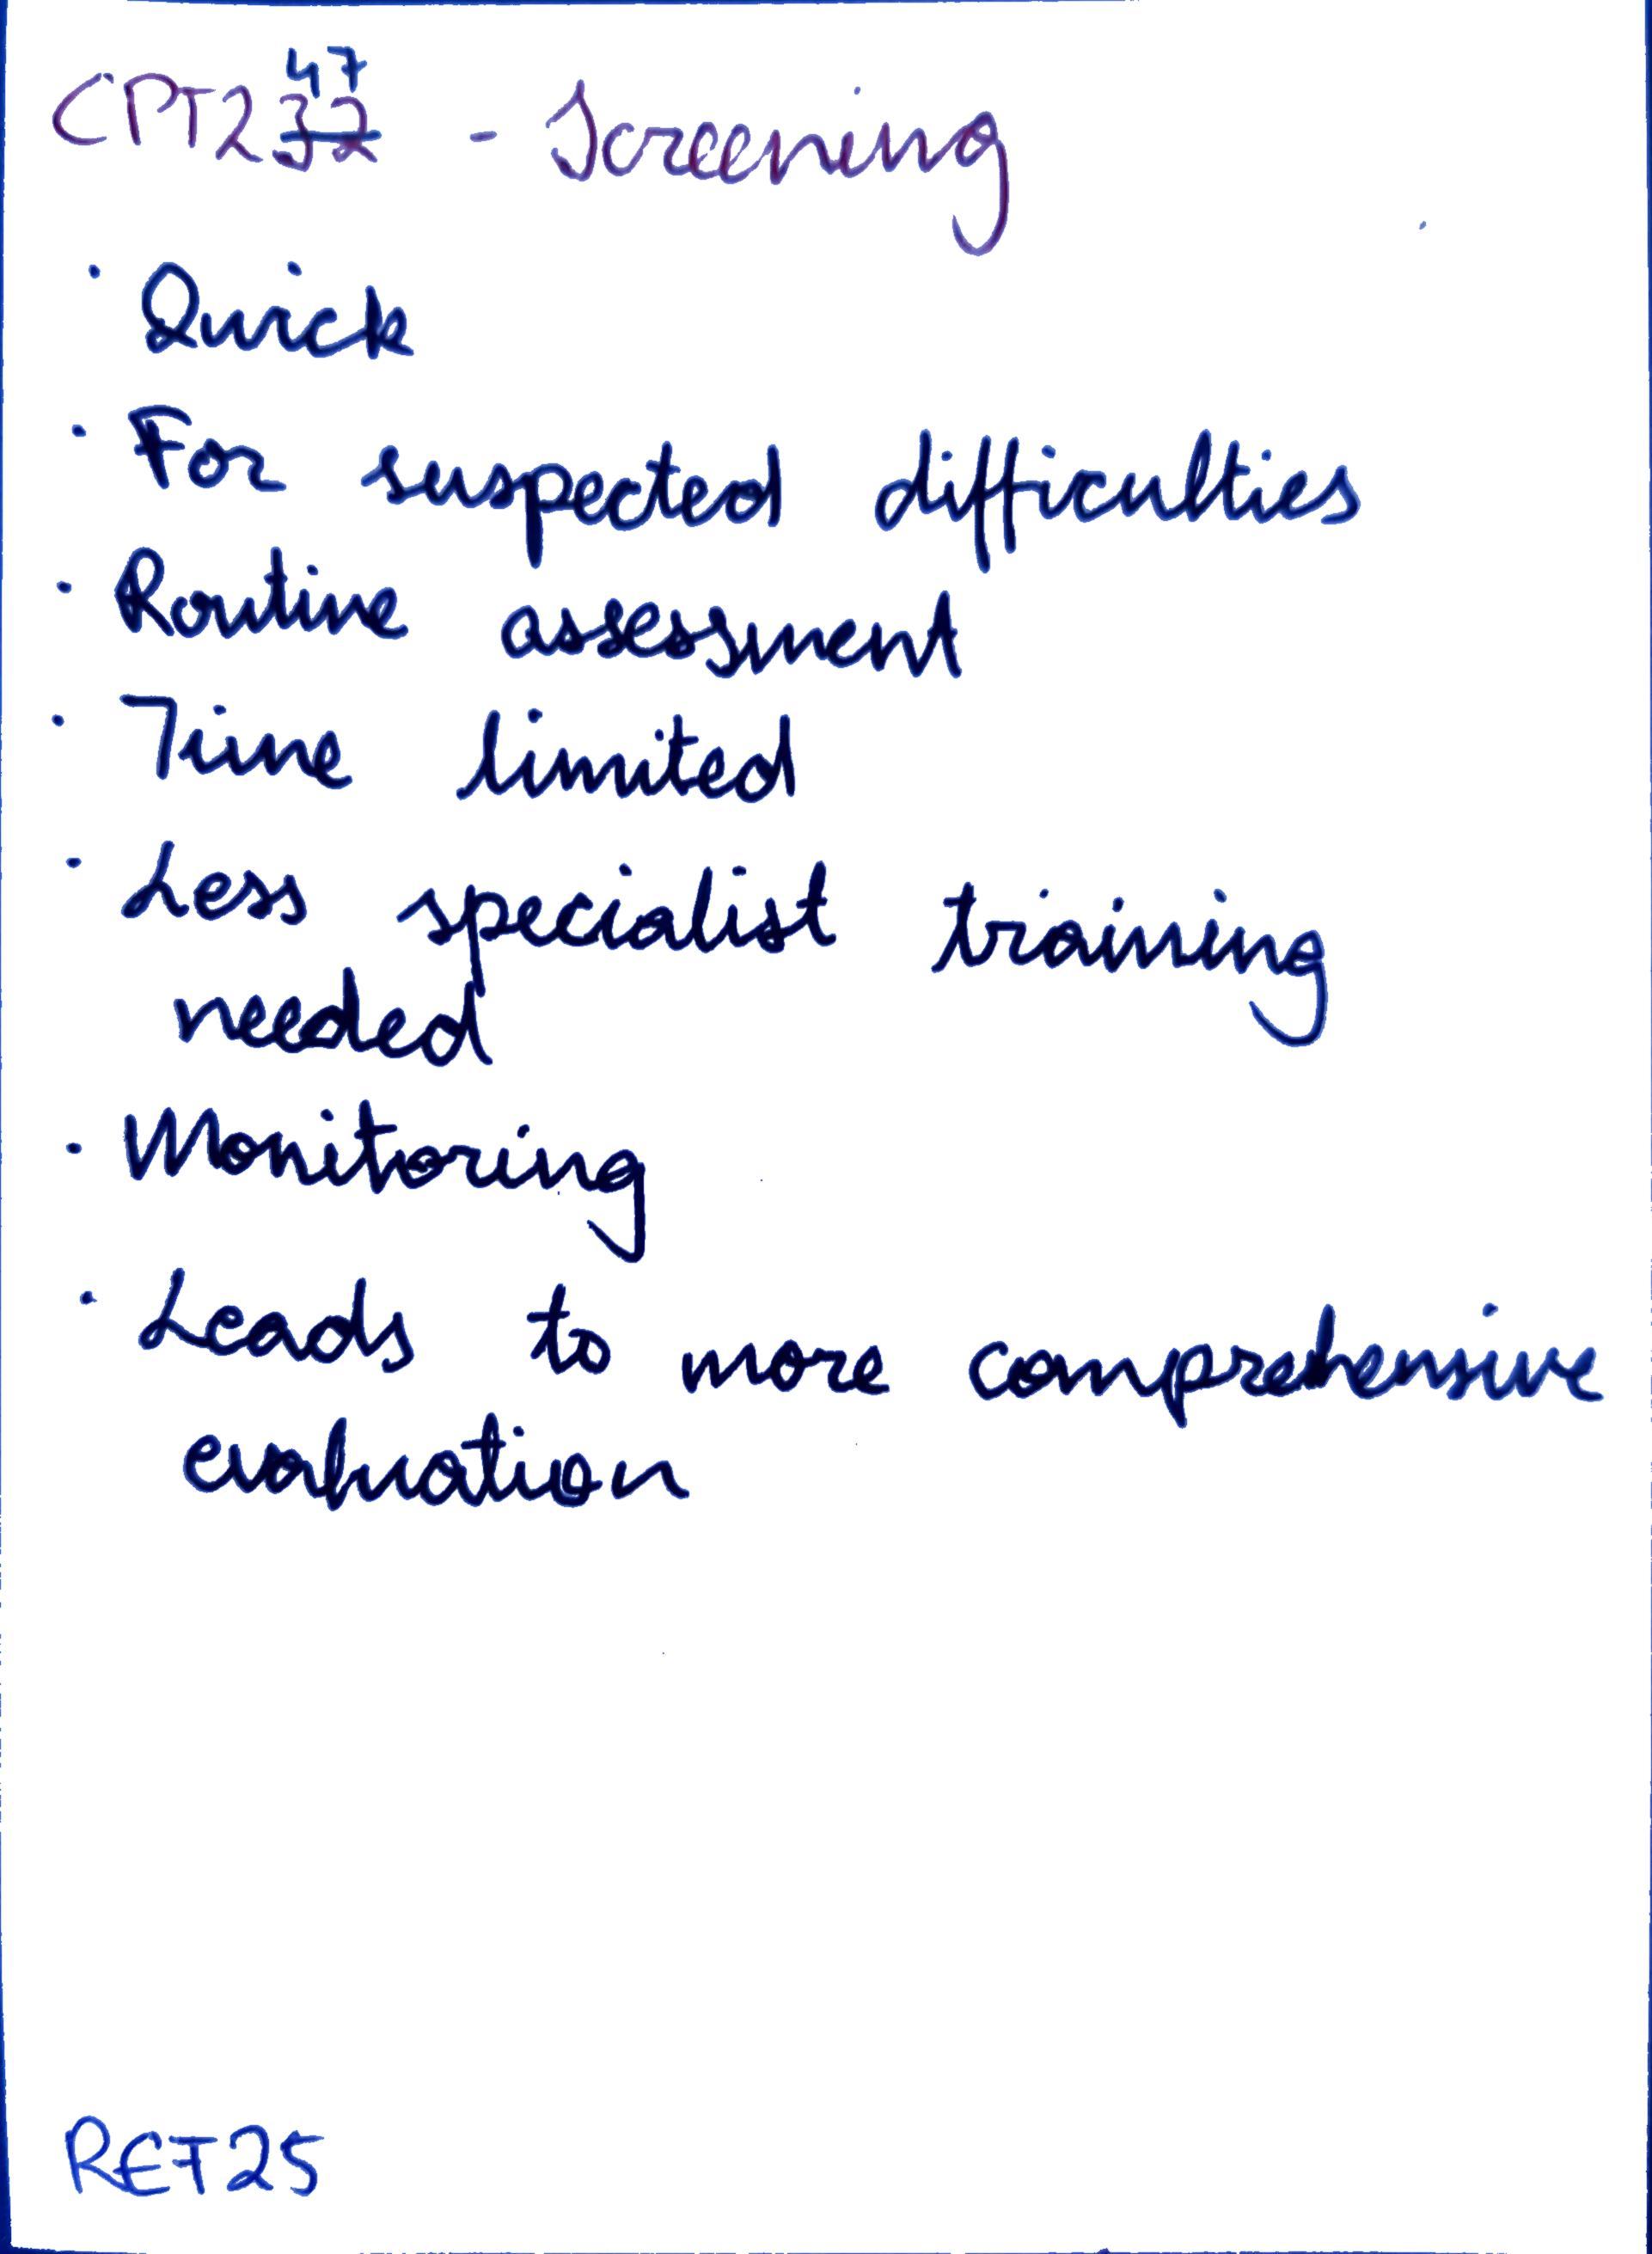 CPT232 47 - Screening
· Quick
· For suspected difficulties
· Routine assessment
· Time limited
· Less specialist training
needed
· Monitoring
· Leads to more comprehensive
evaluation
REF25